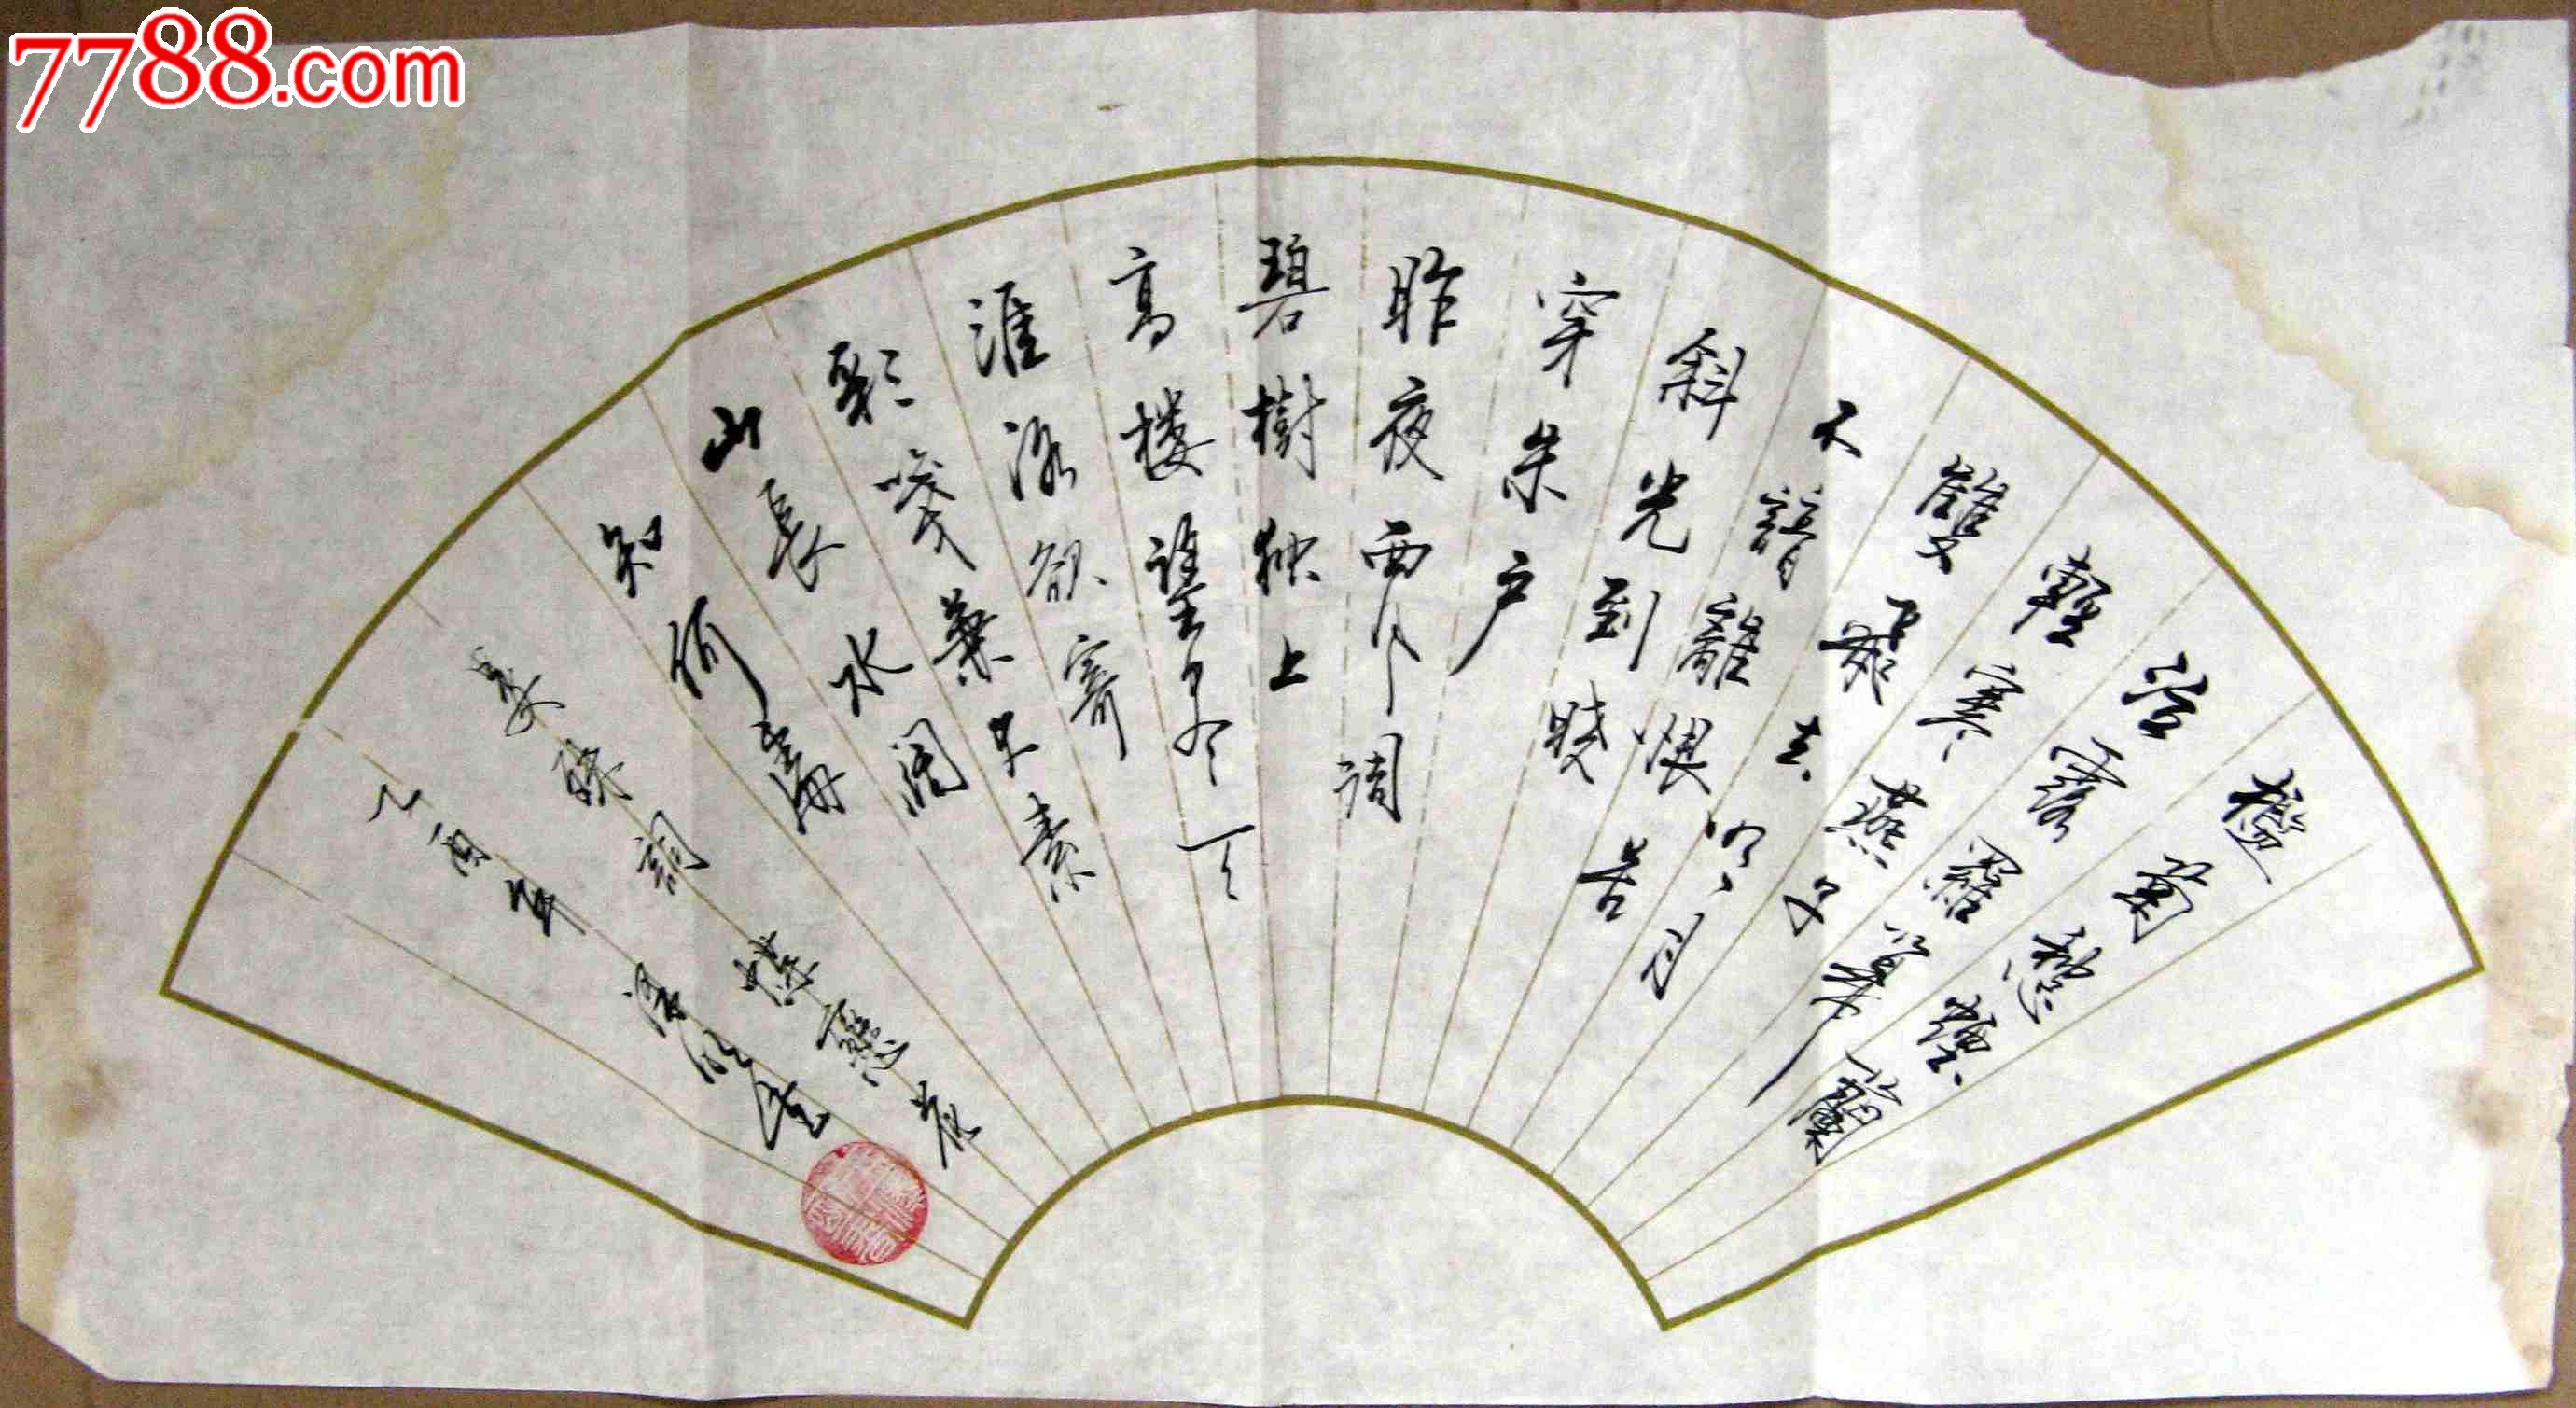 7788.com
檻菊愁煙蘭
泣露羅幕
輕寒燕子
雙飛去明月
不諳離恨苦
斜光到曉
穿朱户
昨夜西风凋
碧樹独上
高楼望尽天
涯路欲寄
彩笺兼尺素
山長水阔
知何處
晏殊詞蝶戀花
乙酉年